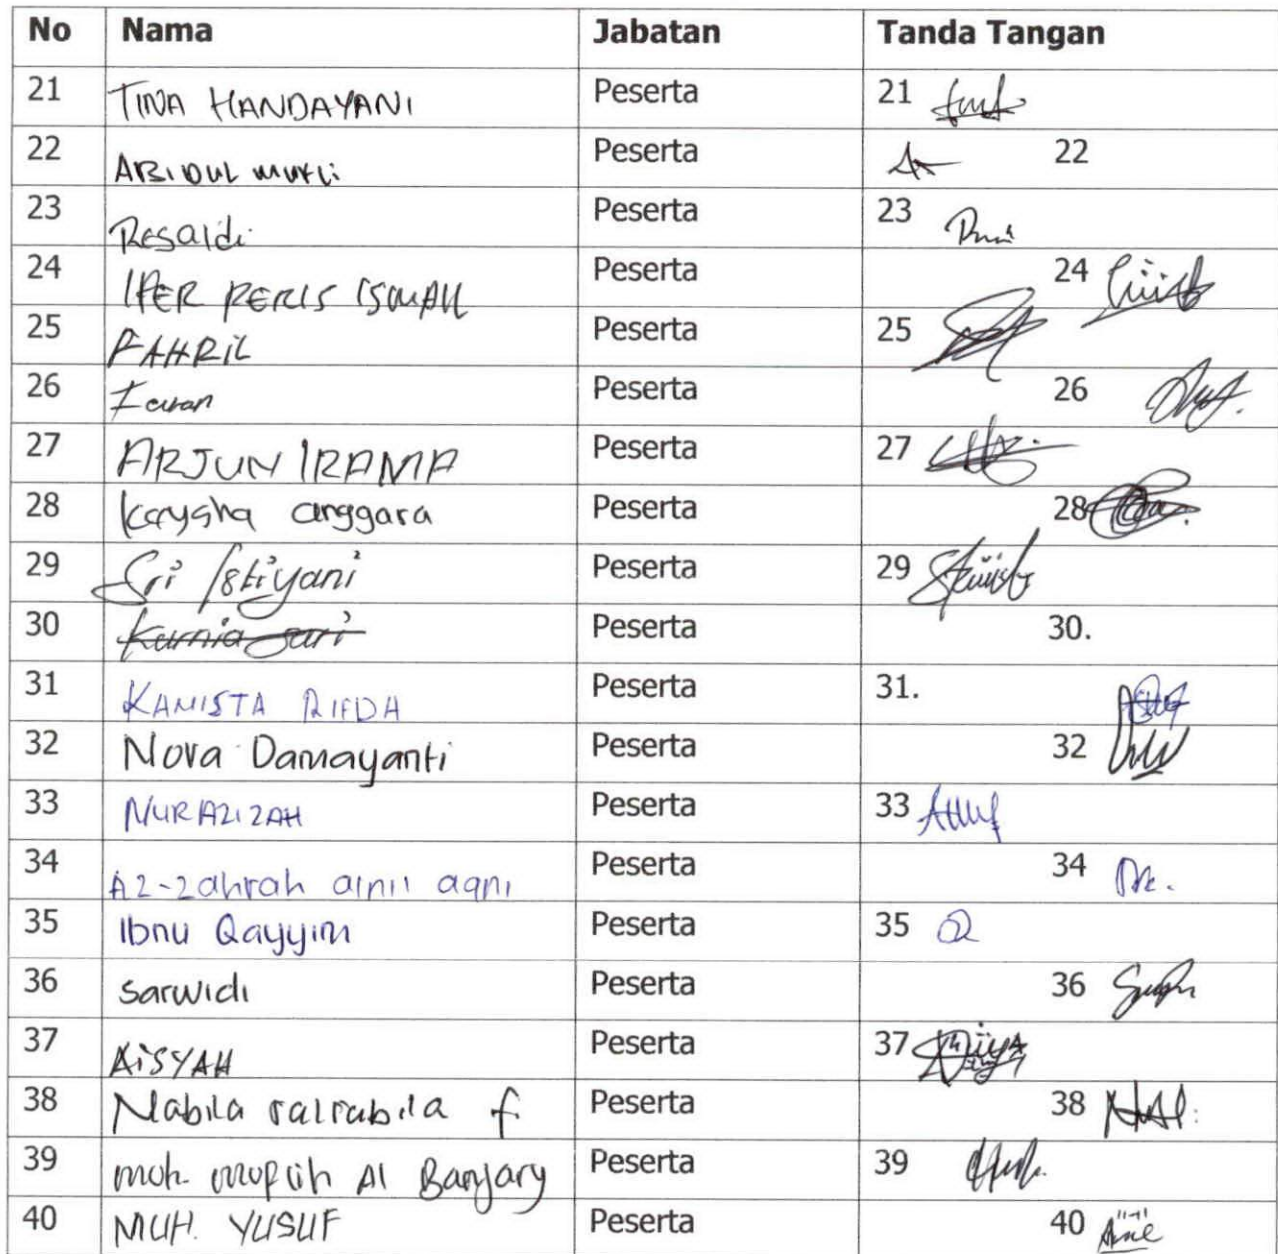 No Nama Jabatan Tanda Tangan
21 TINA HANDAYANI Peserta 21
22 ABIDUL MUKLi Peserta 22
23 Resaldi Peserta 23
24 IFER PERIS ISMAIL Peserta 24
25 FAHRIL Peserta 25
26 Peserta 26
27 ARJUN IRAMA Peserta 27
28 Kaysha anggara Peserta 28
29 Sri Istiyani Peserta 29
30 Kurnia sari Peserta 30.
31 KAMISTA RIFDA Peserta 31.
32 Nova Damayanti Peserta 32
33 NUR AZIZAH Peserta 33
34 AZ-zahrah ainii aqni Peserta 34
35 Ibnu Qayyim Peserta 35
36 sarwidi Peserta 36
37 AiSYAH Peserta 37
38 Nabila salsabila f Peserta 38
39 moh. muflih Al Banjary Peserta 39
40 MUH. YUSUF Peserta 40